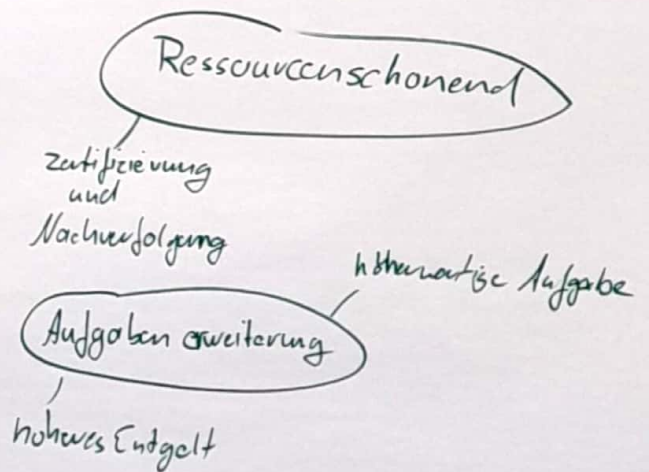 Ressourcenschonend
Zertifizierung
und
Nachverfolgung
höherwertige Aufgabe
Aufgaben erweiterung
höheres Entgelt